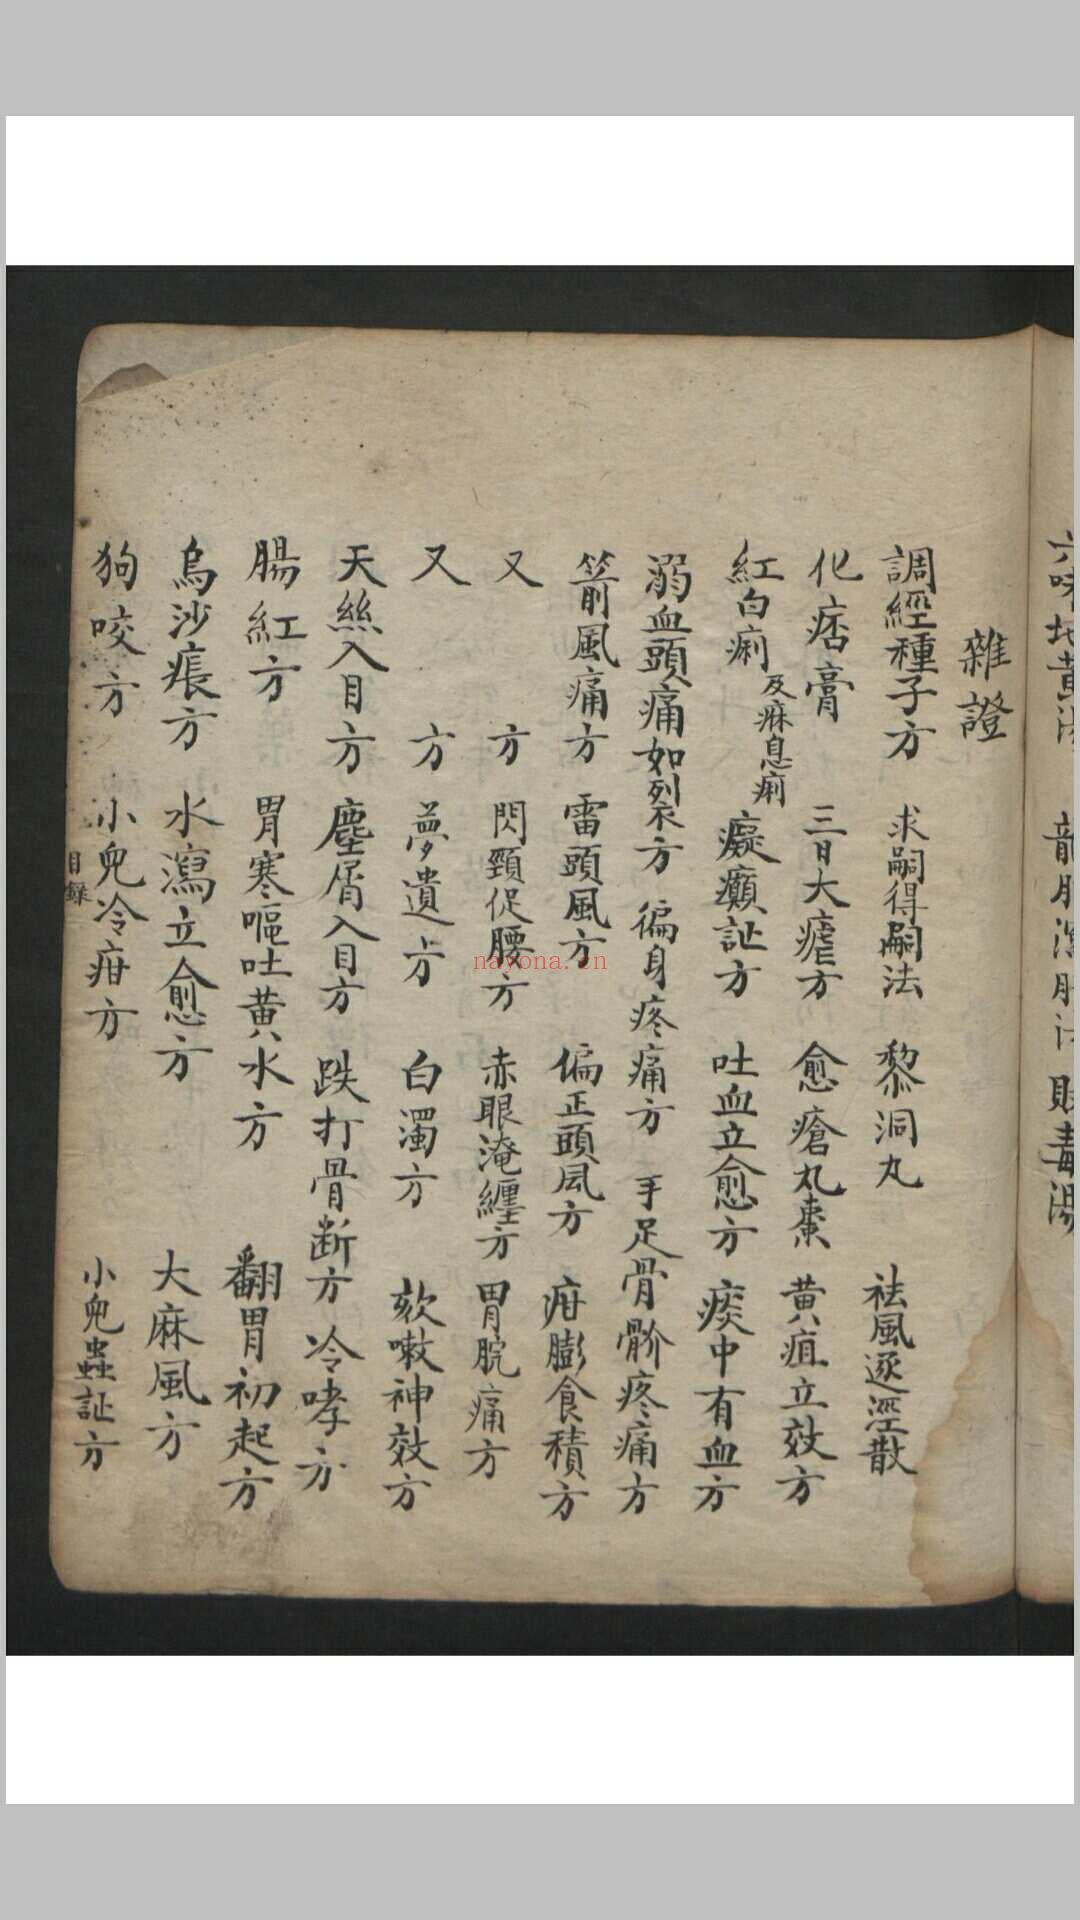 六味地黄湯 龍胆瀉肝 敗毒湯
雜證
調經種子方 求嗣得嗣法 黎洞丸 祛風逐溼散
化痞膏 三日大瘧方 愈瘡丸棗 黃疸立效方
紅白痢及痳息痢 癡癲証方 吐血立愈方 痰中有血方
溺血頭痛如裂衣方 徧身疼痛方 手足骨骱疼痛方
箭風痛方 雷頭風方 偏正頭風方 疳膨食積方
又方 閃頸促腰方 赤眼淹纏方 胃脘痛方
又方 夢遺方 白濁方 欬嗽神效方
天絲入目方 塵屑入目方 跌打骨断方 冷哮方
腸紅方 胃寒嘔吐黄水方 翻胃初起方
烏沙痕方 水瀉立愈方 大麻風方
狗咬方 小兒冷疳方 小兒蟲証方
目錄
nayona.cn